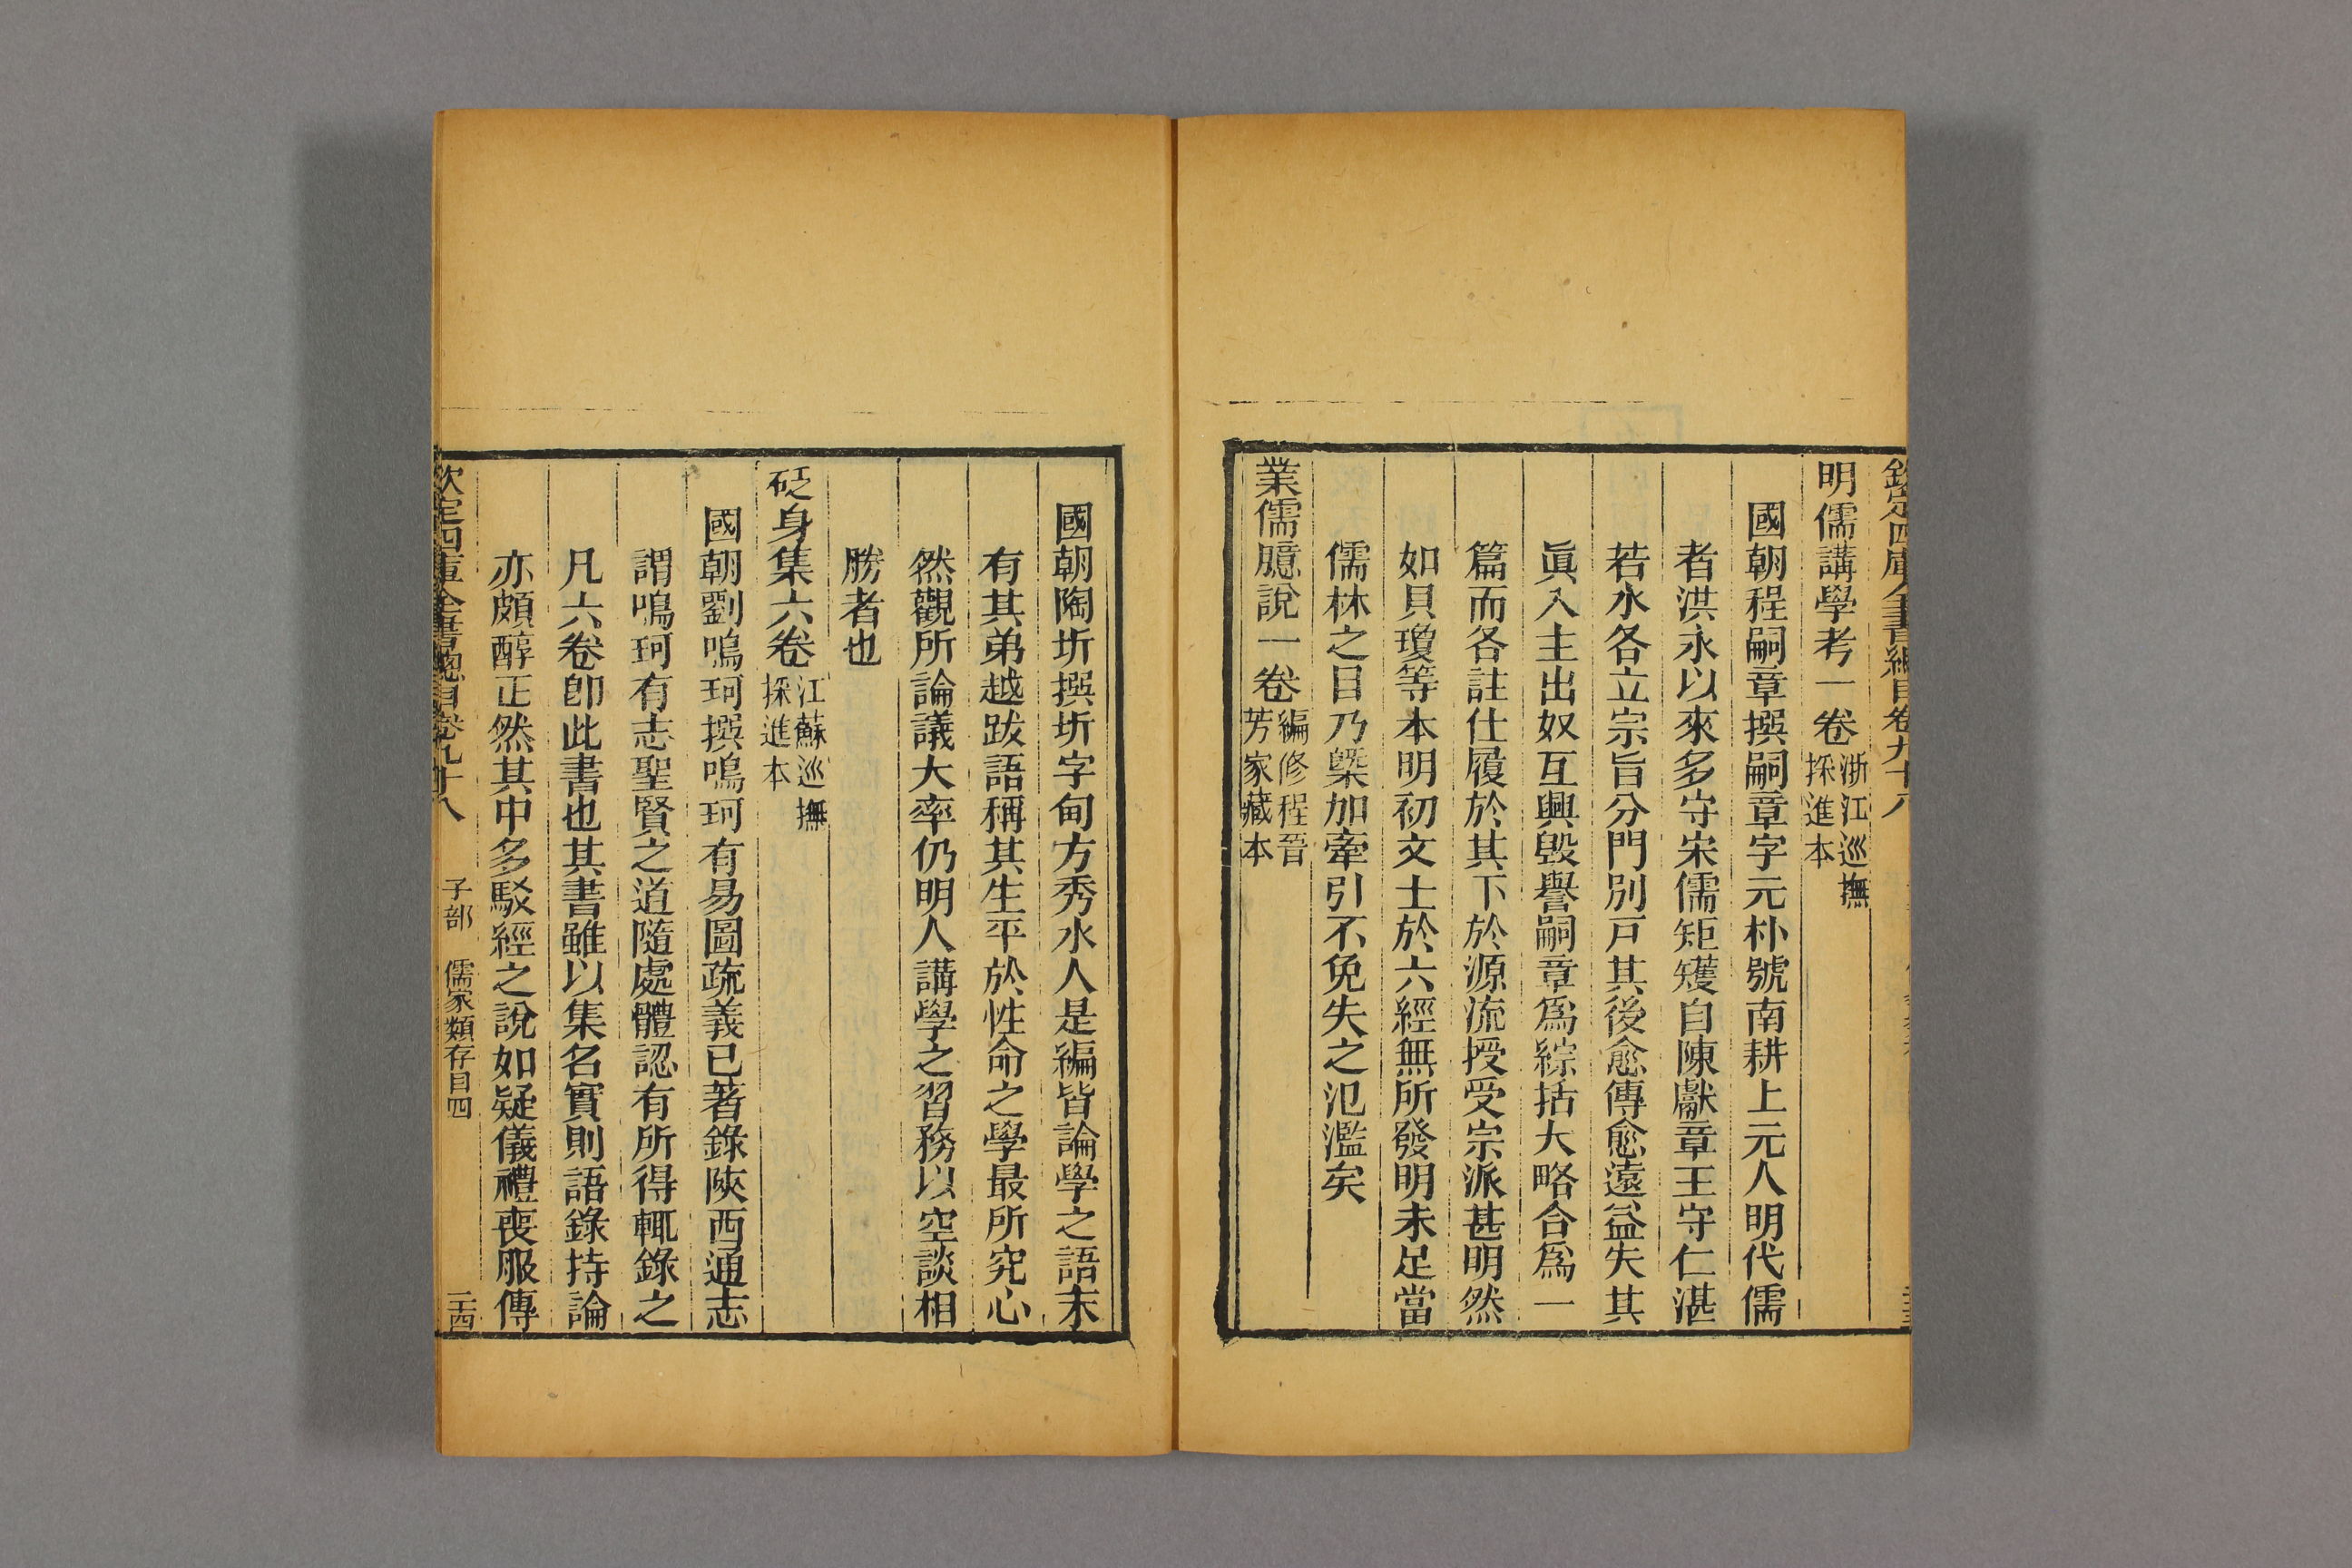 明儒講學考一卷浙江巡撫採進本
國朝程嗣章撰嗣章字元朴號南耕上元人明代儒
者洪永以來多守宋儒矩矱自陳獻章王守仁湛
若水各立宗旨分門別戶其後愈傳愈遠益失其
眞入主出奴互興毀譽嗣章爲綜括大略合爲一
篇而各註仕履於其下於源流授受宗派甚明然
如貝瓊等本明初文士於六經無所發明未足當
儒林之目乃槩加牽引不免失之氾濫矣
業儒臆說一卷編修程晉芳家藏本
國朝陶圻撰圻字甸方秀水人是編皆論學之語末
有其弟越跋語稱其生平於性命之學最所究心
然觀所論議大率仍明人講學之習務以空談相
勝者也
砭身集六卷江蘇巡撫採進本
國朝劉鳴珂撰鳴珂有易圖疏義已著錄陝西通志
謂鳴珂有志聖賢之道隨處體認有所得輒錄之
凡六卷卽此書也其書雖以集名實則語錄持論
亦頗醇正然其中多駁經之說如疑儀禮喪服傳
欽定四庫全書總目卷九十八 子部 儒家類存目四 二十四